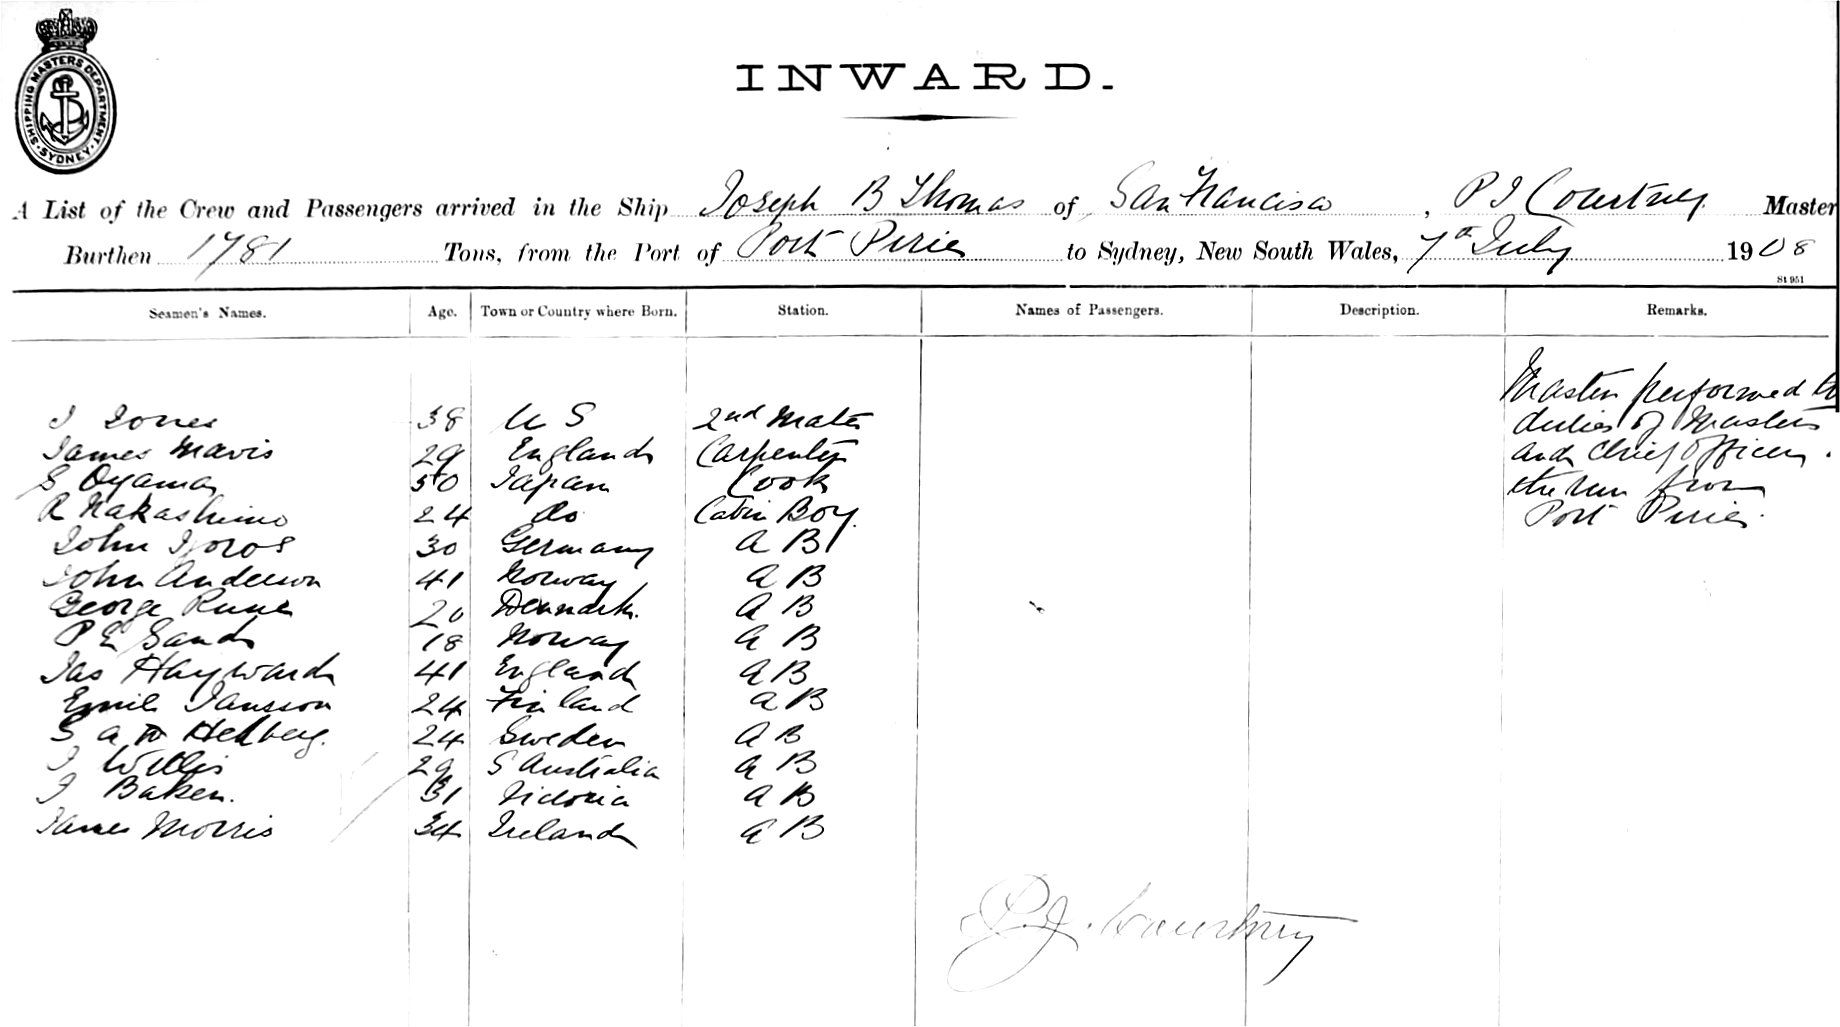 SHIPPING MASTERS DEPARTMENT. SYDNEY
INWARD.
A List of the Crew and Passengers arrived in the Ship Joseph B Thomas of San Francisco, P J Courtney Master
Burthen 1781 Tons, from the Port of Port Pirie to Sydney, New South Wales, 7th July 1908
St 951
Seamen's Names. Age. Town or Country where Born. Station. Names of Passengers. Description. Remarks.
J Jones 38 U S 2nd Mate
James Mavis 29 England Carpenter
S Oyama 50 Japan Cook
R Nakashima 24 do Cabin Boy.
John 30 Germany A B
John Anderson 41 Norway A B
George Rune 20 Denmark. A B
P E Sando 18 Norway A B
Jas Hayward 41 England A B
Emil Jansson 24 Finland A B
S A Hedberg. 24 Sweden A B
J Willis 29 S Australia A B
J Baker. 31 Victoria A B
James Morris 34 Ireland A B
Master performed the
duties of Master
and Chief Officer.
the run from
Port Pirie.
P. J. Courtney